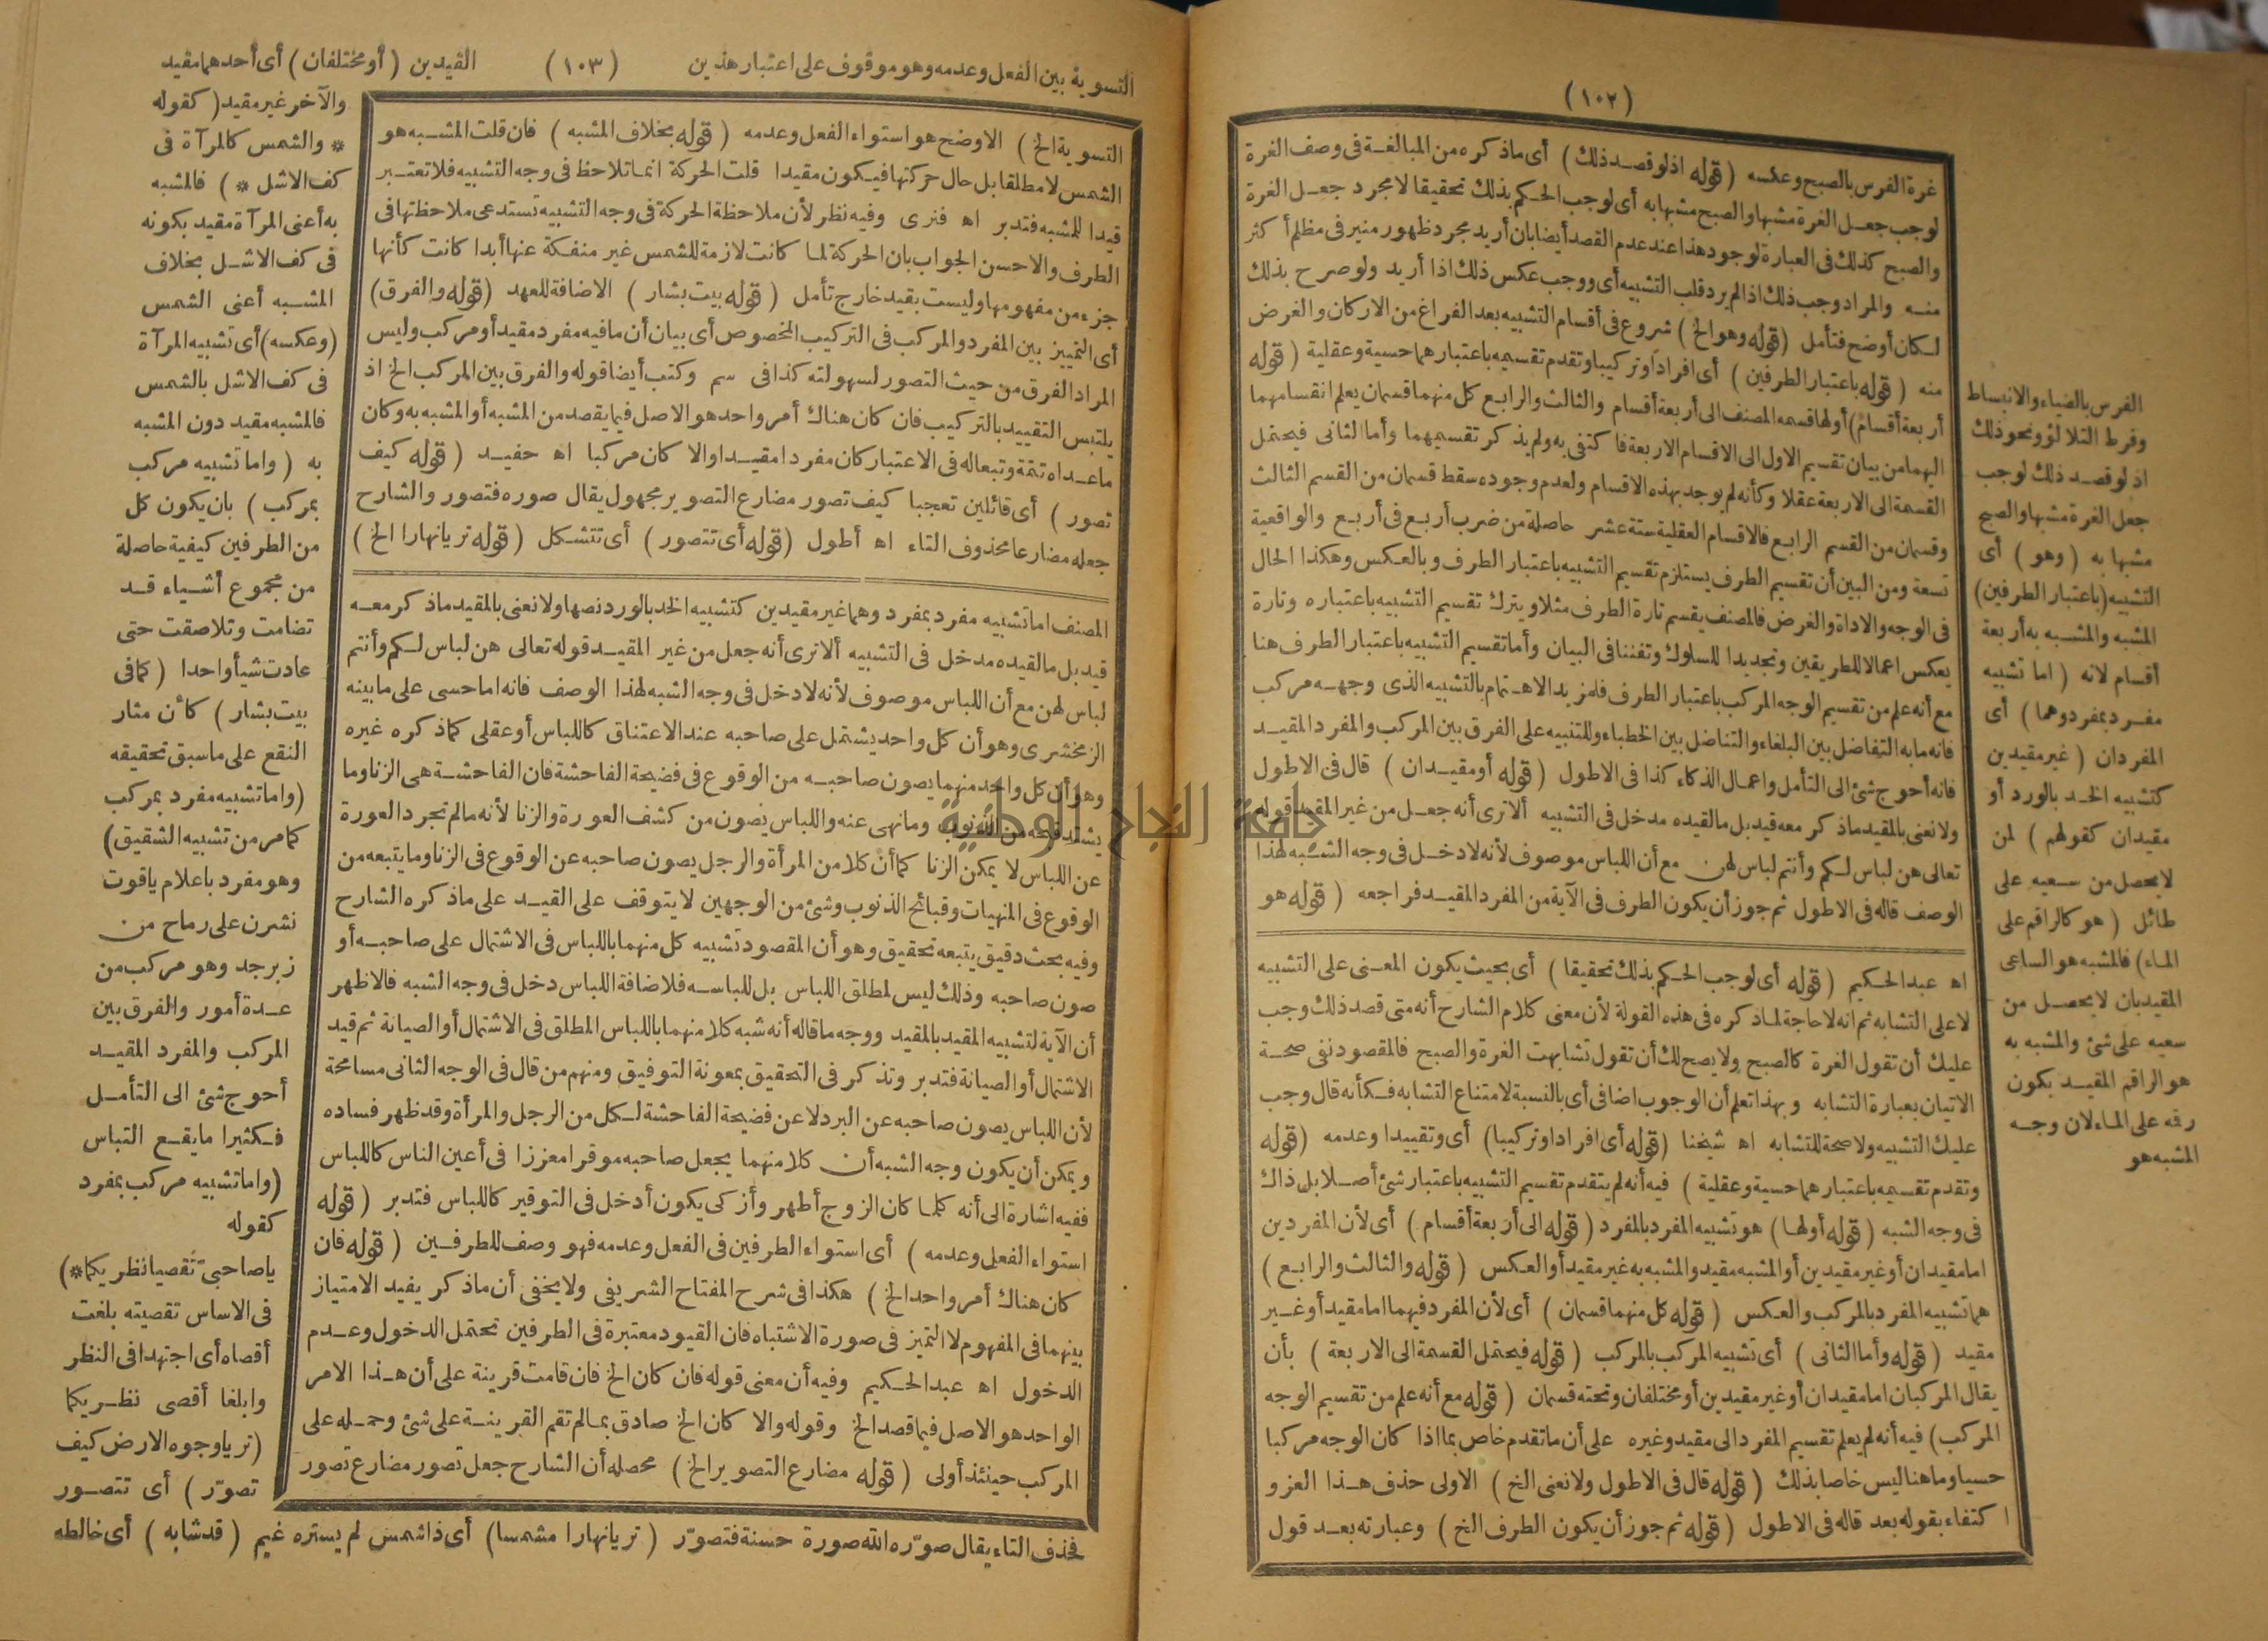 (١٠٢)
غرة الفرس بالصبح وعكسه (قوله اذ لو قصد ذلك) أى ماذكره من المبالغة فى وصف الغرة
لوجب جعل الغرة مشبها والصبح مشبها به أى لوجب الحكم بذلك تحقيقا لا مجرد جعل الغرة
والصبح كذلك فى العبارة لوجود هذا عند عدم القصد أيضا بان أريد مجرد ظهور منير فى مظلم أكثر
منه والمراد وجب ذلك اذا لم يرد قلب التشبيه أى ووجب عكس ذلك اذا أريد ولو صرح بذلك
لكان أوضح فتأمل (قوله وهو الخ) شروع فى أقسام التشبيه بعد الفراغ من الاركان والغرض
منه (قوله باعتبار الطرفين) أى افرادا وتركيبا وتقدم تقسيمه باعتبارهما حسية وعقلية (قوله
أربعة أقسام) أولها قسمه المصنف الى أربعة أقسام والثالث والرابع كل منهما قسمان يعلم انقسامهما
اليهما من بيان تقسيم الاول الى الاقسام الاربعة فاكتفى به ولم يذكر تقسيمهما وأما الثانى فيحتمل
القسمة الى الاربعة عقلا وكأنه لم يوجد بهذه الاقسام ولعدم وجوده سقط قسمان من القسم الثالث
وقسمان من القسم الرابع فالاقسام العقلية ستة عشر حاصلة من ضرب أربع فى أربع والواقعية
تسعة ومن البين أن تقسيم الطرف يستلزم تقسيم التشبيه باعتبار الطرف وبالعكس وهكذا الحال
فى الوجه والاداة والغرض فالمصنف يقسم تارة الطرف مثلا ويترك تقسيم التشبيه باعتباره وتارة
يعكس اعمالا للطريقين وتجديدا للسلوك وتفننا فى البيان وأما تقسيم التشبيه باعتبار الطرف هنا
مع أنه علم من تقسيم الوجه المركب باعتبار الطرف فلمزيد الاهتمام بالتشبيه الذى وجهه مركب
فانه مابه التفاضل بين البلغاء والتناضل بين الخطباء وللتنبيه على الفرق بين المركب والمفرد المقيد
فانه أحوج شئ الى التأمل واعمال الذكاء كذا فى الاطول (قوله أو مقيدان) قال فى الاطول
ولا نعنى بالمقيد ماذكر معه قيد بل مالقيده مدخل فى التشبيه ألا ترى أنه جعل من غير المقيد قوله
تعالى هن لباس لكم وأنتم لباس لهن مع أن اللباس موصوف لأنه لا دخل فى وجه الشبه لهذا
الوصف قاله فى الاطول ثم جوز أن يكون الطرف فى الآية من المفرد المقيد فراجعه (قوله هو
اه عبد الحكيم (قوله أى لوجب الحكم بذلك تحقيقا) أى بحيث يكون المعنى على التشبيه
لا على التشابه ثم انه لا حاجة لما ذكره فى هذه القولة لأن معنى كلام الشارح أنه متى قصد ذلك وجب
عليك أن تقول الغرة كالصبح ولا يصح لك أن تقول تشابهت الغرة والصبح فالمقصود نفى صحة
الاتيان بعبارة التشابه وبهذا تعلم أن الوجوب اضافى أى بالنسبة لامتناع التشابه فكأنه قال وجب
عليك التشبيه ولا صحة للتشابه اه شيخنا (قوله أى افرادا وتركيبا) أى وتقييدا وعدمه (قوله
وتقدم تقسيمه باعتبارهما حسية وعقلية) فيه أنه لم يتقدم تقسيم التشبيه باعتبار شئ أصلا بل ذاك
فى وجه الشبه (قوله أولها) هو تشبيه المفرد بالمفرد (قوله الى أربعة أقسام) أى لأن المفردين
اما مقيدان أو غير مقيدين أو المشبه مقيد والمشبه به غير مقيد أو العكس (قوله والثالث والرابع)
هما تشبيه المفرد بالمركب والعكس (قوله كل منهما قسمان) أى لأن المفرد فيهما اما مقيد أو غير
مقيد (قوله وأما الثانى) أى تشبيه المركب بالمركب (قوله فيحتمل القسمة الى الاربعة) بأن
يقال المركبان اما مقيدان أو غير مقيدين أو مختلفان وتحته قسمان (قوله مع أنه علم من تقسيم الوجه
المركب) فيه أنه لم يعلم تقسيم المفرد الى مقيد وغيره على أن ماتقدم خاص بما اذا كان الوجه مركبا
حسيا وما هنا ليس خاصا بذلك (قوله قال فى الاطول ولا نعنى الخ) الاولى حذف هذا العزو
اكتفاء بقوله بعد قاله فى الاطول (قوله ثم جوز أن يكون الطرف الخ) وعبارته بعد قول
الفرس بالضياء والانبساط
وفرط التلالؤ ونحو ذلك
اذ لو قصد ذلك لوجب
جعل الغرة مشبها والصبح
مشبها به (وهو) أى
التشبيه (باعتبار الطرفين)
المشبه والمشبه به أربعة
أقسام لانه (اما تشبيه
مفرد بمفرد وهما) أى
المفردان (غير مقيدين
كتشبيه الخد بالورد أو
مقيدان كقولهم) لمن
لا يحصل من سعيه على
طائل (هو كالراقم على
الماء) فالمشبه هو الساعى
المقيد بان لا يحصل من
سعيه على شئ والمشبه به
هو الراقم المقيد بكون
رقمه على الماء لان وجه
الشبه هو
التسوية بين الفعل وعدمه وهو موقوف على اعتبار هذين (١٠٣) القيدين (أو مختلفان) أى أحدهما مقيد
التسوية الخ) الاوضح هو استواء الفعل وعدمه (قوله بخلاف المشبه) فان قلت المشبه هو
الشمس لا مطلقا بل حال حركتها فيكون مقيدا قلت الحركة انما تلاحظ فى وجه التشبيه فلا تعتبر
قيدا للمشبه فتدبر اه فنرى وفيه نظر لأن ملاحظة الحركة فى وجه التشبيه تستدعى ملاحظتها فى
الطرف والاحسن الجواب بان الحركة لما كانت لازمة للشمس غير منفكة عنها أبدا كانت كأنها
جزء من مفهومها وليست بقيد خارج تأمل (قوله بيت بشار) الاضافة للعهد (قوله والفرق)
أى التمييز بين المفرد والمركب فى التركيب المخصوص أى بيان أن مافيه مفرد مقيد أو مركب وليس
المراد الفرق من حيث التصور لسهولته كذا فى سم وكتب أيضا قوله والفرق بين المركب الخ اذ
يلتبس التقييد بالتركيب فان كان هناك أمر واحد هو الاصل فيما يقصد من المشبه أو المشبه به وكان
ماعداه تتمة وتبعا له فى الاعتبار كان مفردا مقيدا والا كان مركبا اه حفيد (قوله كيف
تصور) أى قائلين تعجبا كيف تصور مضارع التصوير مجهول يقال صوره فتصور والشارح
جعله مضارعا محذوف التاء اه أطول (قوله أى تتصور) أى تتشكل (قوله تريا نهارا الخ)
المصنف اما تشبيه مفرد بمفرد وهما غير مقيدين كتشبيه الخد بالورد نصها ولا نعنى بالمقيد ماذكر معه
قيد بل مالقيده مدخل فى التشبيه ألا ترى أنه جعل من غير المقيد قوله تعالى هن لباس لكم وأنتم
لباس لهن مع أن اللباس موصوف لأنه لا دخل فى وجه الشبه لهذا الوصف فانه اما حسى على مابينه
الزمخشرى وهو أن كل واحد يشتمل على صاحبه عند الاعتناق كاللباس أو عقلى كما ذكره غيره
وهو أن كل واحد منهما يصون صاحبه من الوقوع فى فضيحة الفاحشة فان الفاحشة هى الزنا وما
يشتد قبحه من الذنوب وما نهى عنه واللباس يصون من كشف العورة والزنا لأنه مالم تجرد العورة
عن اللباس لا يمكن الزنا كما أن كلا من المرأة والرجل يصون صاحبه عن الوقوع فى الزنا وما يتبعه من
الوقوع فى المنهيات وقبائح الذنوب وشئ من الوجهين لا يتوقف على القيد على ماذكره الشارح
وفيه بحث دقيق يتبعه تحقيق وهو أن المقصود تشبيه كل منهما باللباس فى الاشتمال على صاحبه أو
صون صاحبه وذلك ليس لمطلق اللباس بل للباسه فلاضافة اللباس دخل فى وجه الشبه فالاظهر
أن الآية لتشبيه المقيد بالمقيد ووجه ماقاله أنه شبه كلا منهما باللباس المطلق فى الاشتمال أو الصيانة ثم قيد
الاشتمال أو الصيانة فتدبر وتذكر فى التحقيق بمعونة التوفيق ومنهم من قال فى الوجه الثانى مسامحة
لأن اللباس يصون صاحبه عن البرد لا عن فضيحة الفاحشة لكل من الرجل والمرأة وقد ظهر فساده
ويمكن أن يكون وجه الشبه أن كلا منهما يجعل صاحبه موقرا معززا فى أعين الناس كاللباس
ففيه اشارة الى أنه كلما كان الزوج أطهر وأزكى يكون أدخل فى التوقير كاللباس فتدبر (قوله
استواء الفعل وعدمه) أى استواء الطرفين فى الفعل وعدمه فهو وصف للطرفين (قوله فان
كان هناك أمر واحد الخ) هكذا فى شرح المفتاح الشريفى ولا يخفى أن ماذكر يفيد الامتياز
بينهما فى المفهوم لا التميز فى صورة الاشتباه فان القيود معتبرة فى الطرفين تحتمل الدخول وعدم
الدخول اه عبد الحكيم وفيه أن معنى قوله فان كان الخ فان قامت قرينة على أن هذا الامر
الواحد هو الاصل فيما قصد الخ وقوله والا كان الخ صادق بما لم تقم القرينة على شئ وحمله على
المركب حينئذ أولى (قوله مضارع التصوير الخ) محصله أن الشارح جعل تصور مضارع تصور
والآخر غير مقيد (كقوله
* والشمس كالمرآة فى
كف الاشل *) فالمشبه
به أعنى المرآة مقيد بكونه
فى كف الاشل بخلاف
المشبه أعنى الشمس
(وعكسه) أى تشبيه المرآة
فى كف الاشل بالشمس
فالمشبه مقيد دون المشبه
به (واما تشبيه مركب
بمركب) بان يكون كل
من الطرفين كيفية حاصلة
من مجموع أشياء قد
تضامت وتلاصقت حتى
عادت شيأ واحدا (كما فى
بيت بشار) كأن مثار
النقع على ماسبق تحقيقه
(واما تشبيه مفرد بمركب
كما مر من تشبيه الشقيق)
وهو مفرد باعلام ياقوت
نشرن على رماح من
زبرجد وهو مركب من
عدة أمور والفرق بين
المركب والمفرد المقيد
أحوج شئ الى التأمل
فكثيرا مايقع التباس
(واما تشبيه مركب بمفرد
كقوله
ياصاحبىّ تقصيا نظريكما*)
فى الاساس تقصيته بلغت
أقصاه أى اجتهدا فى النظر
وابلغا أقصى نظريكما
(تريا وجوه الارض كيف
تصوّر) أى تتصور
فحذف التاء يقال صوّره الله صورة حسنة فتصوّر (تريا نهارا مشمسا) أى ذا شمس لم يستره غيم (قد شابه) أى خالطه
جامعة النجاح الوطنية